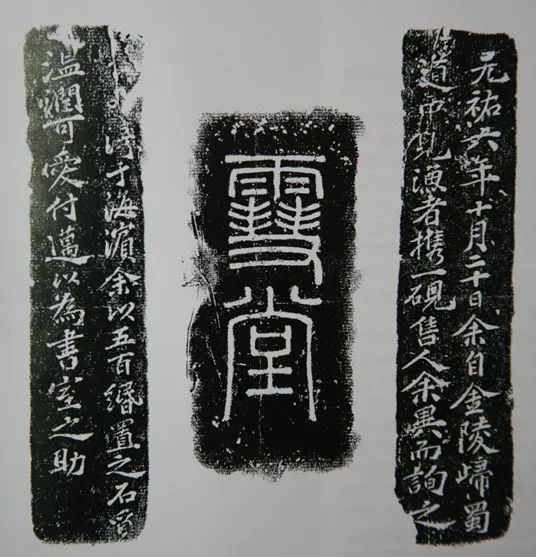 元祐六年十月二十日余自金陵歸蜀
道中見漁者携一硯售人余異而詢之
雪堂
于海濱余以五百緡置之石
溫潤可愛付邁以為書室之助